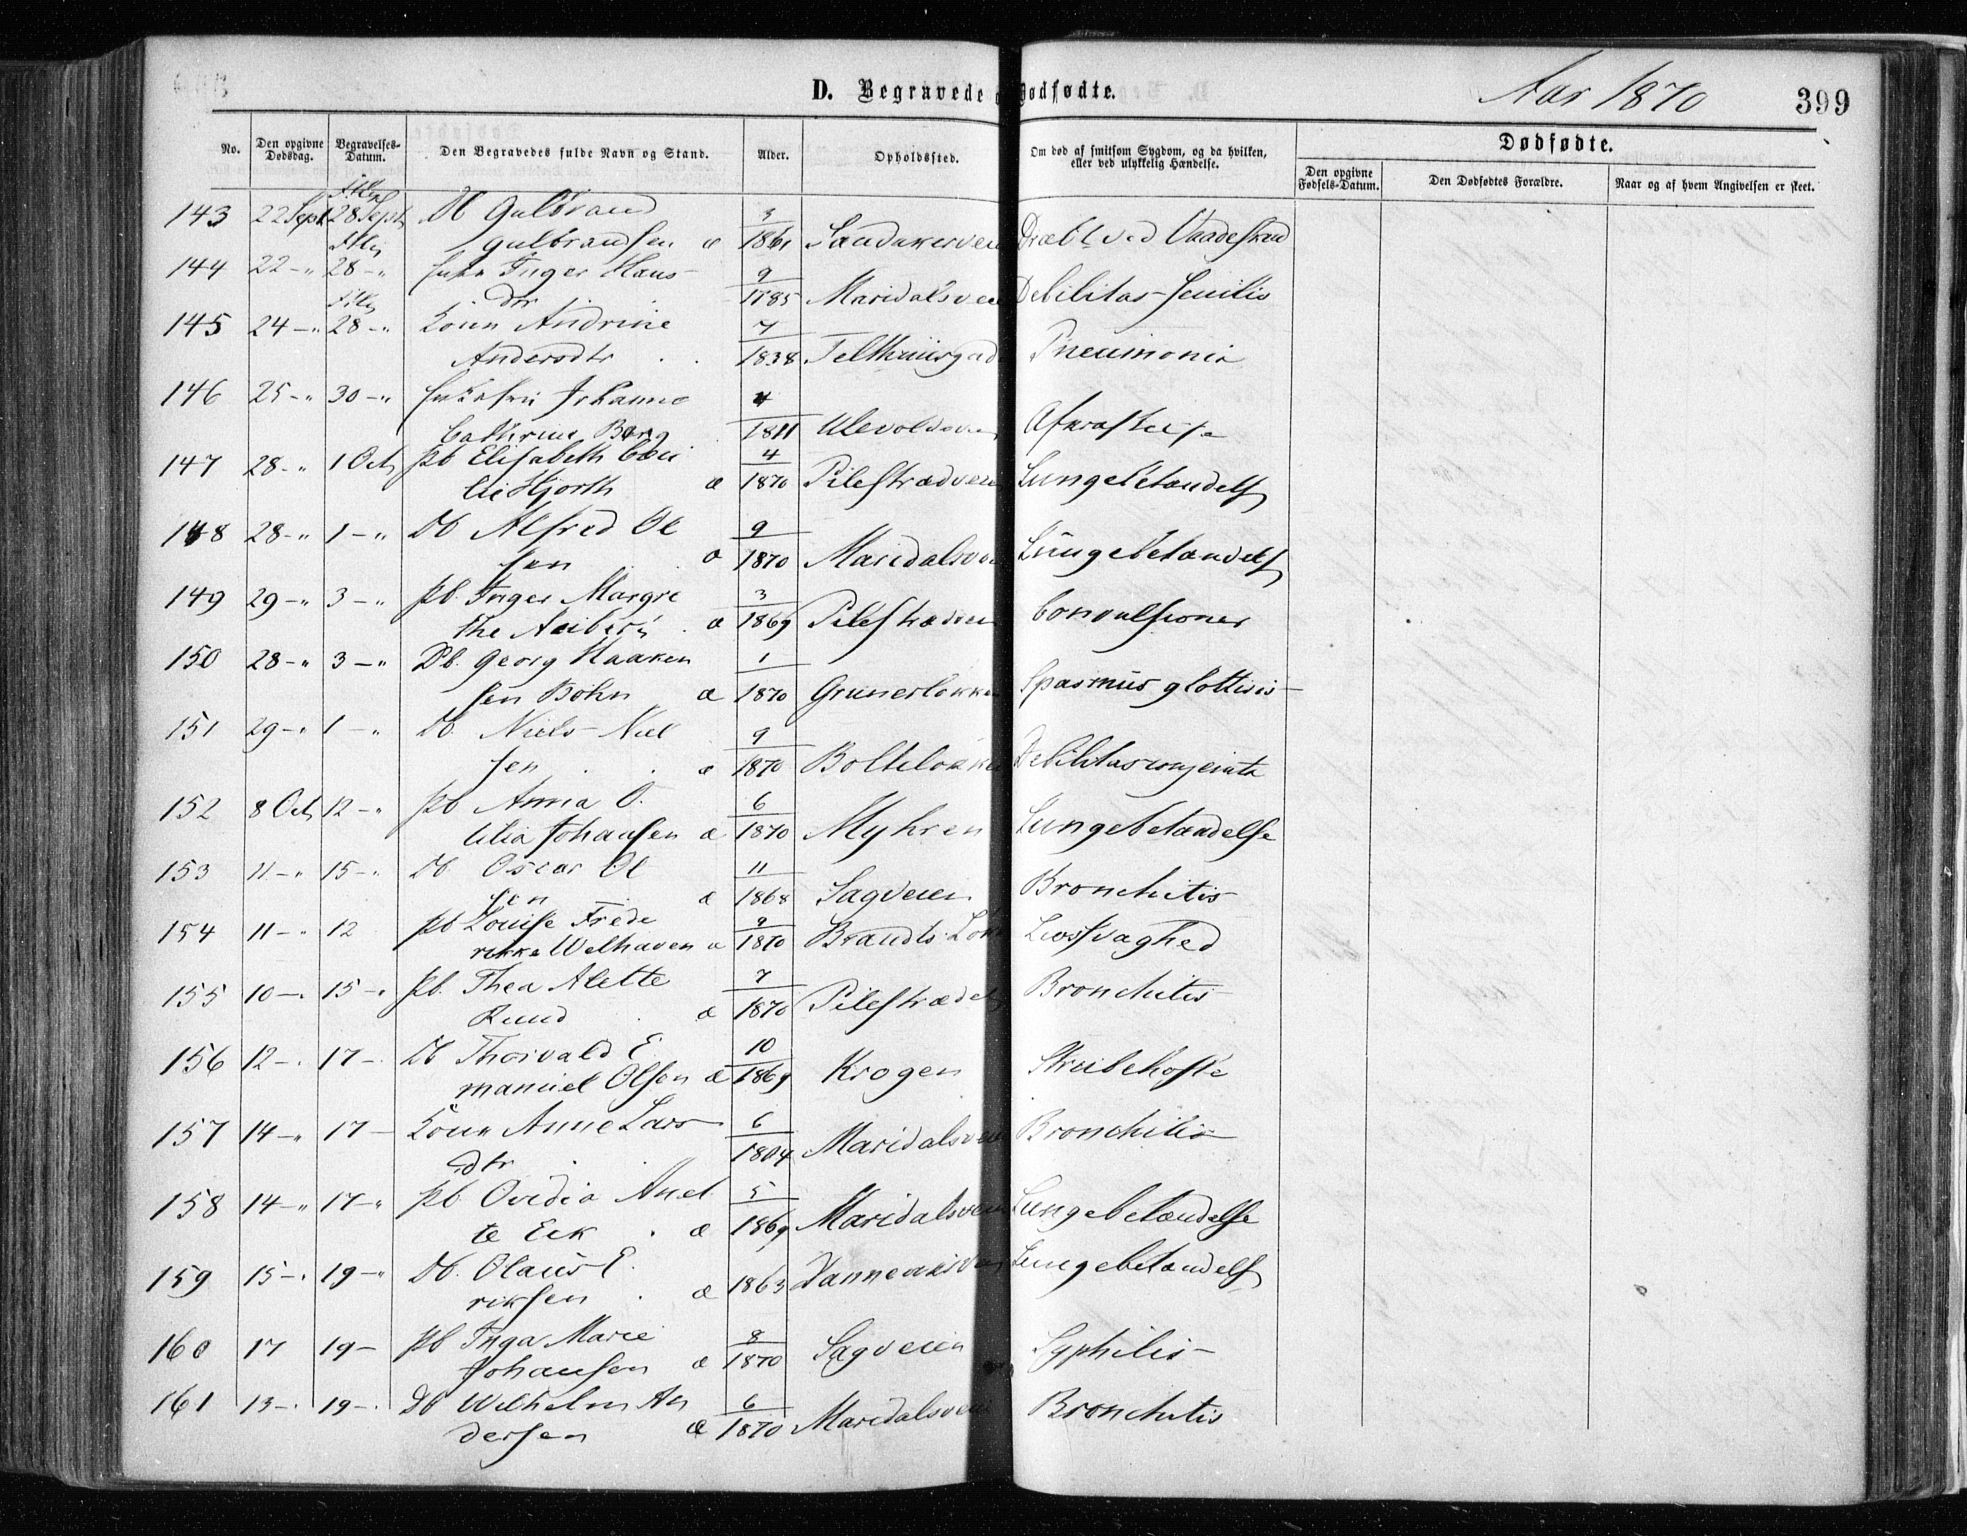 D. Begravede o Dødfødte.
Aar 1870
399
No.
Den opgivne Dødsdag.
Begravelses-Datum.
Den Begravedes fulde Navn og Stand.
Alder.
Opholdssted.
Om død af smitsom Sygdom, og da hvilken, eller ved ulykkelig Hændelse.
Dødfødte.
Den opgivne Fødsels-Datum.
Den Dødfødtes Forældre.
Naar og af hvem Angivelsen er skeet.
143 22 Sept 28 Sept Db Gulbrand 3
Gulbrandsen æ 1861 Sandakerveien Dræbt ved Vaadeskud
144 22 - " 28 - " Inger Hans- 9
dtr 1785 Maridalsveien Debilitas senilis
145 24 - " 28 - " Kone Andrine 7
Andersdtr . . 1838 Telthuusgad Pneumonia
146 25 - " 30 - " Johanne 4
Cathrine Berg 1811 Ulevoldsvei Afkræftelse
147 28 - " 1 Oct Pb Elisabeth Ceci 4
lie Hjorth æ 1870 Pilestrædveien Lungebetændelse
148 28 - " 1 - " Db Alfred Ol 9
sen . æ 1870 Maridalsvei Lungebetændelse
149 29 - " 3 - " Pb. Inger Margre 3
the . æ 1869 Pilestrædvei Convulsioner
150 28 - " 3 - " Db. Georg Haaken 1
sen Bohn æ 1870 Grunerløkken Spasmus glottisis
151 29 - " 1 - " Db Niels Niel 9
sen . . æ 1870 Bolteløkken Debilitas congenita
152 8 Oct 12 - " Pb Anna O. 6
tilia Johansen æ 1870 Myhren Lungebetændelse
153 11 - " 15 - " Db Oscar Ol 11
sen æ 1868 Sagveien Bronchitis
154 11 - " 12 Pb Louise Frede 9
rikke Welhaven æ 1870 Brandts Løk Livssvaghed
155 10 - . 15 - . Pb. Thea Alette 7
Ruud . æ 1870 Pilestrædet Bronchitis
156 12 - . 17 - . Db Thorvald E 10
manuel Olsen æ 1869 Krogen Strubehoste
157 14 - " 17 - Kone Anne Lars 6
dtr . . 1804 Maridalsveien Bronchitis
158 14 - " 17 - " Pb. Ovidia Anet 5
te Eek . æ 1869 Maridalsveien Lungebetændelse
159 15 - . 19 - " Db. Olaus E.
riksen . æ 1863 Dannevigsvei Lungebetændelse
160 17 19 - Pb Inga Marie 8
Johansen æ 1870 Sagveien Syphilis
161 13 - . 19 - . Db Wilhelm An 6
dersen æ 1870 Maridalsveien Bronchitis